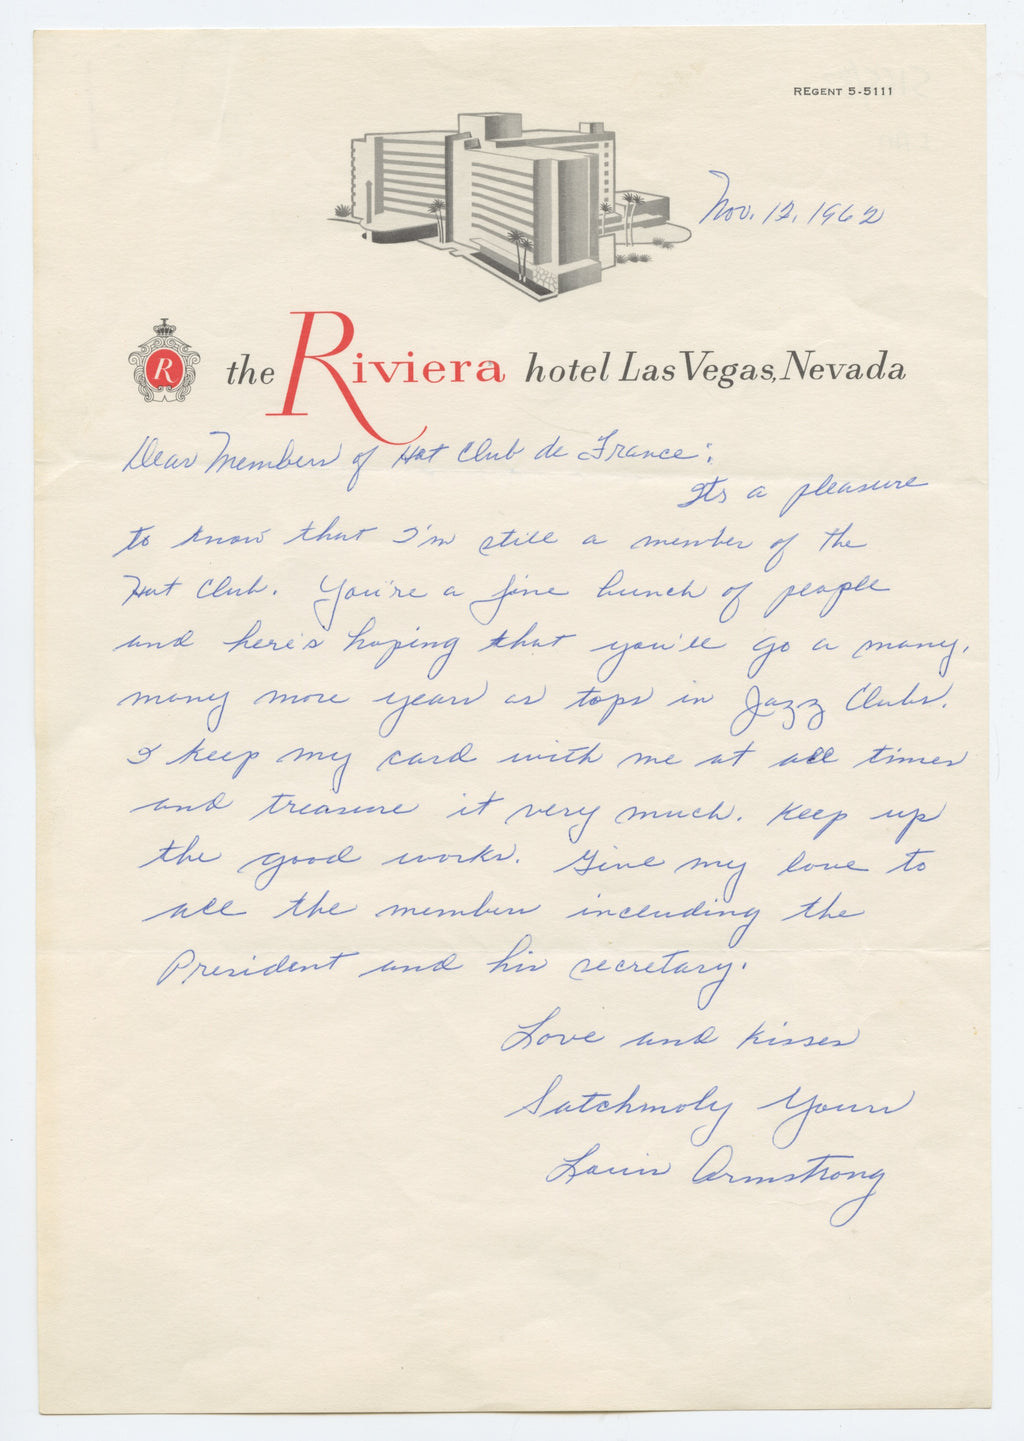 REGENT 5-5111
Nov. 12, 1962
R the Riviera hotel Las Vegas, Nevada
Dear Members of Hot Club de France:
Its a pleasure
to know that I'm still a member of the
Hot Club. You're a fine bunch of people
and here's hoping that you'll go a many,
many more years as tops in Jazz Clubs.
I keep my card with me at all times
and treasure it very much. Keep up
the good works. Give my love to
all the members including the
President and his secretary.
Love and Kisses
Satchmoly Yours
Louis Armstrong